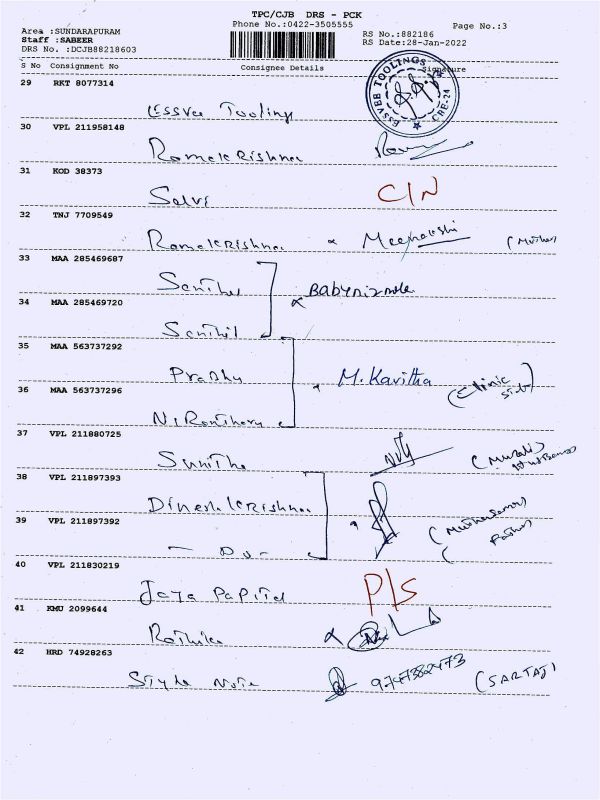 TPC/CJB DRS - PCK
Phone No.:0422-3505555
Page No.:3
Area :SUNDARAPURAM
Staff :SABEER
DRS No. :DCJB88218603
RS No.:882186
RS Date:28-Jan-2022
S No Consignment No Consignee Details Signature
29 RKT 8077314
Essvee Tooling
ESSVEE TOOLINGS CBE-24
30 VPL 211958148
Ramakrishna
31 KOD 38373
Selvi C/N
32 TNJ 7709549
Ramakrishna Meenakshi (Mother)
33 MAA 285469687
34 MAA 285469720
Senthil
35 MAA 563737292
Prabhu M.Kavitha (Clinic
36 MAA 563737296
37 VPL 211880725
Sunitha (Murali)
38 VPL 211897393
Dineshkrishna
39 VPL 211897392
40 VPL 211830219
Jaya P/S
41 KMU 2099644
Rathika
42 HRD 74928263
Style Note 9747382473 (SARTAJ)